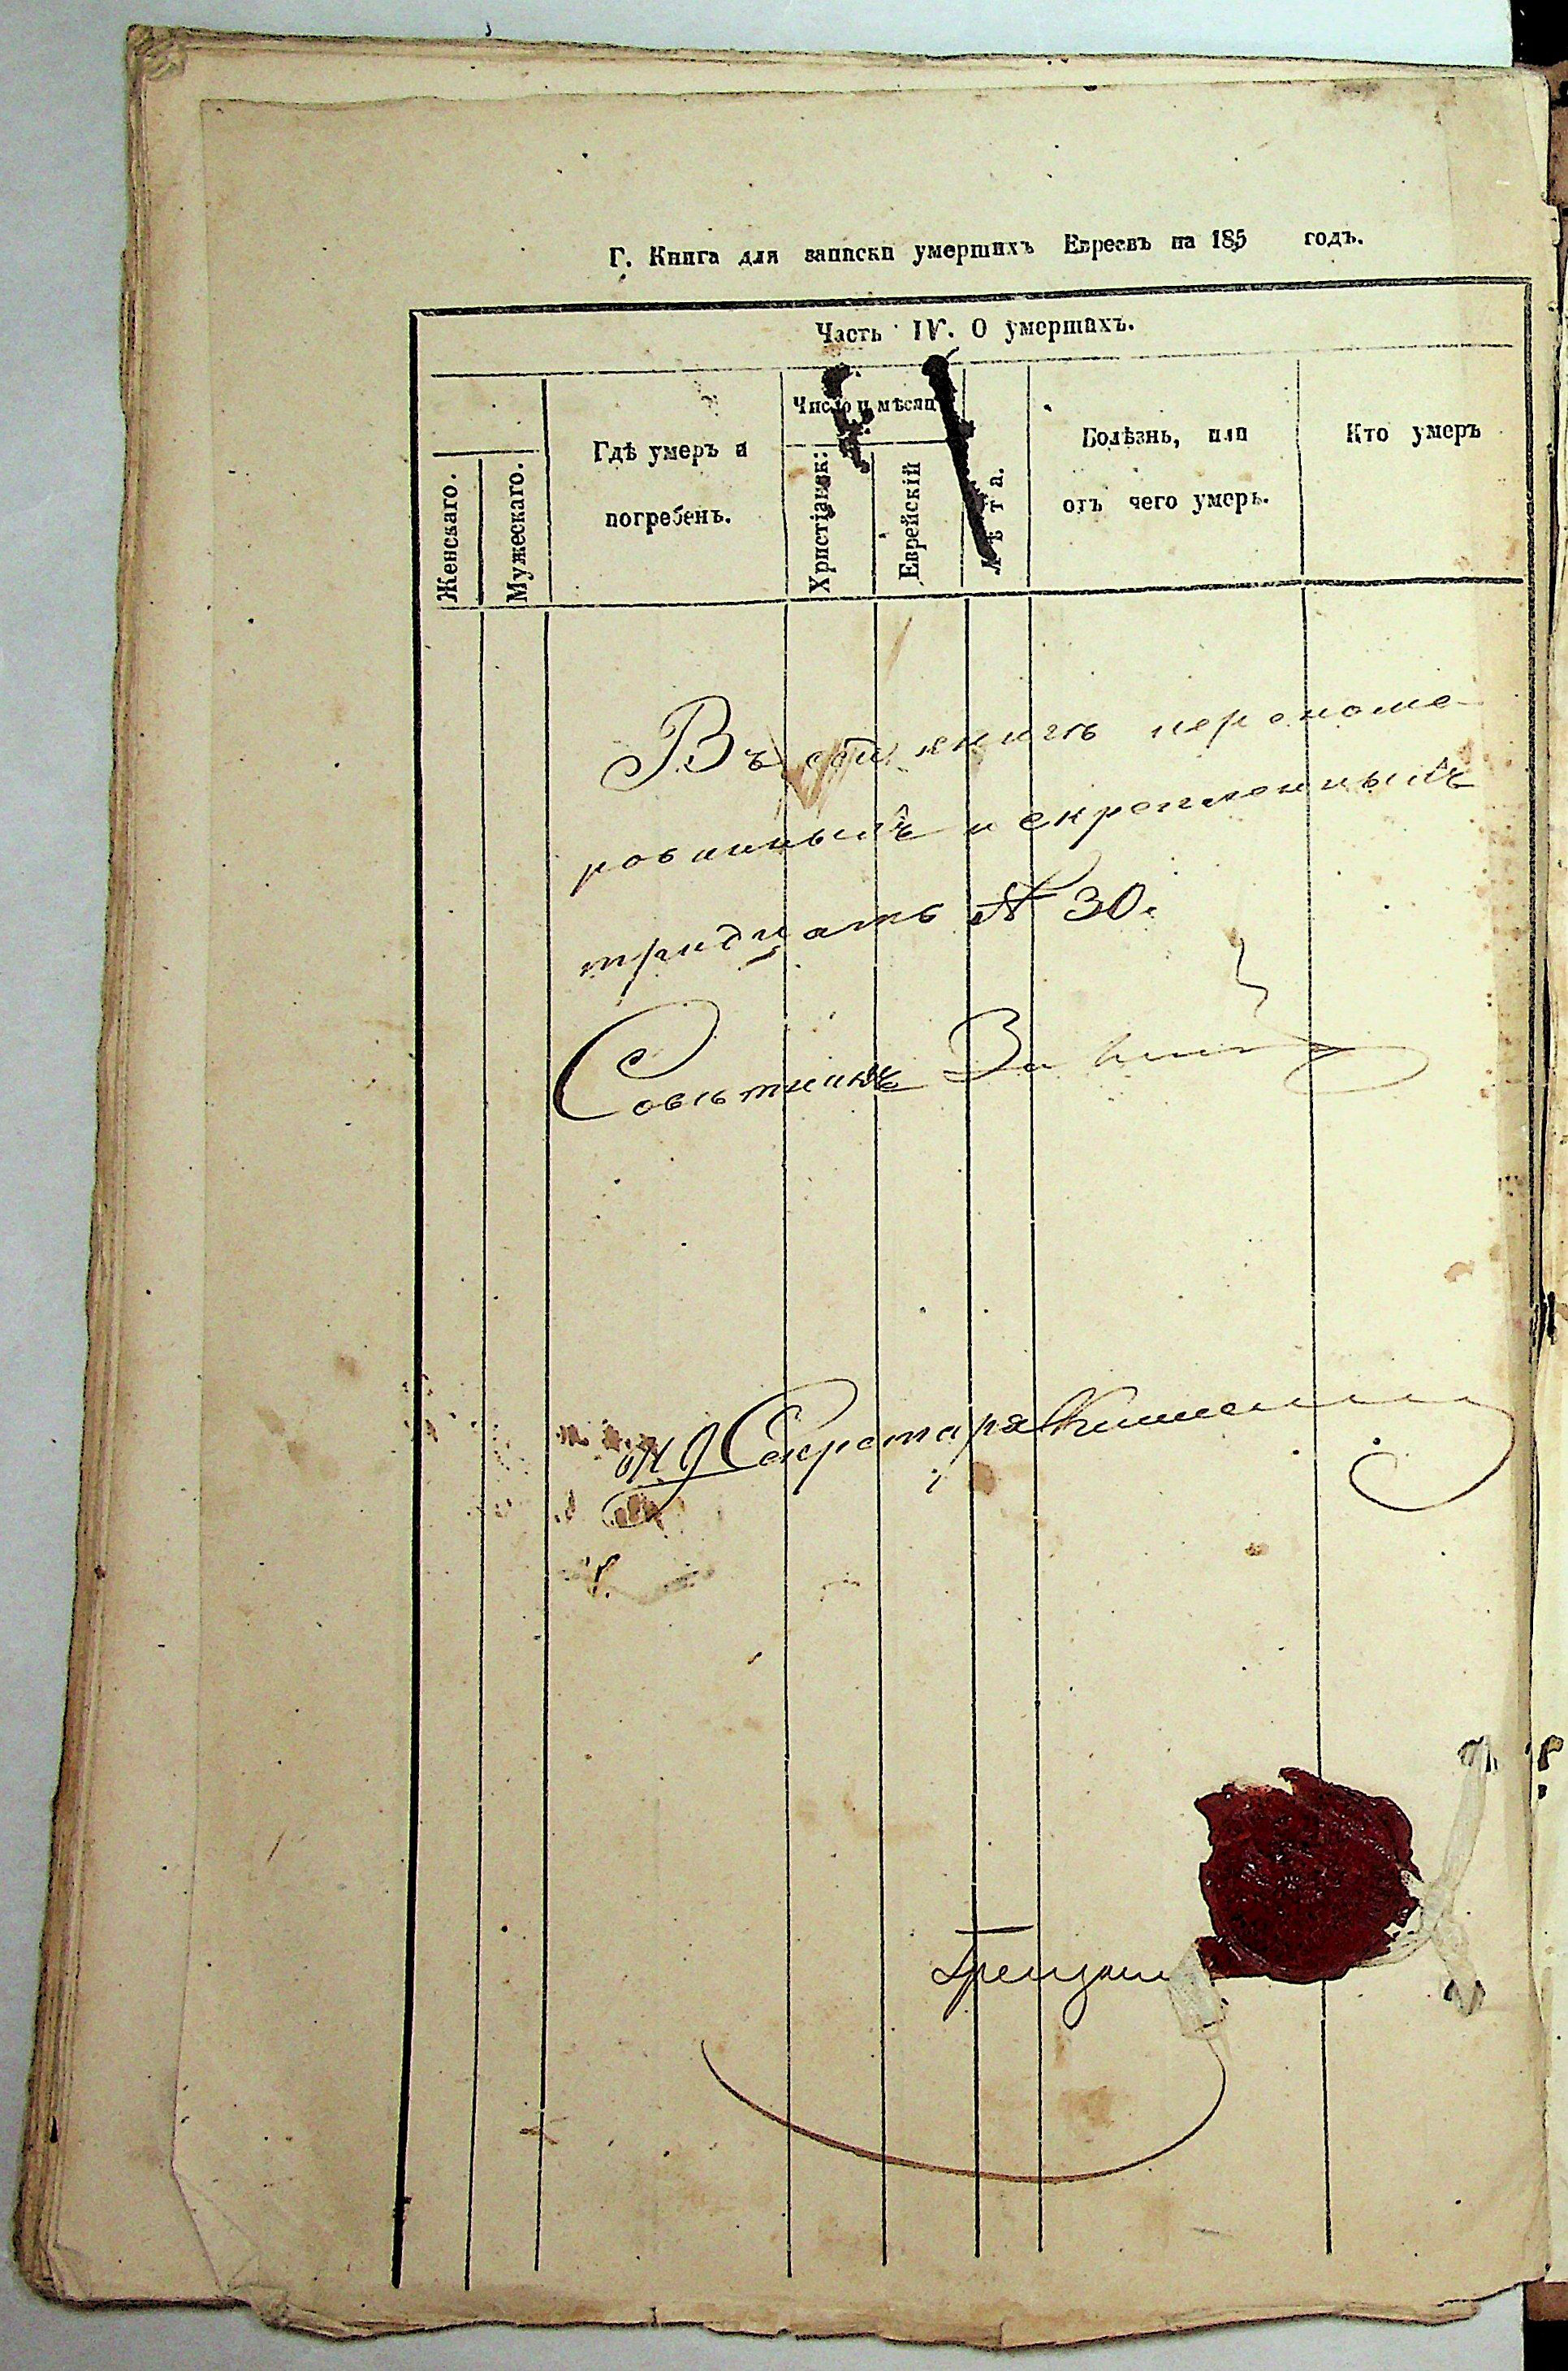 Г. Книга для записки умершихъ Евреевъ на 185 годъ.
Часть IV. О умершихъ.
Женскаго.
Мужескаго.
Гдѣ умеръ и
погребенъ.
Число и мѣсяц
Христіанск:
Еврейскій
Лѣта.
Болѣзнь, или
отъ чего умеръ.
Кто умеръ
Въ сей книгѣ перономе-
рованныхъ и скрепленныхъ
тридцать № 30.
Совѣтникъ
Секретаря